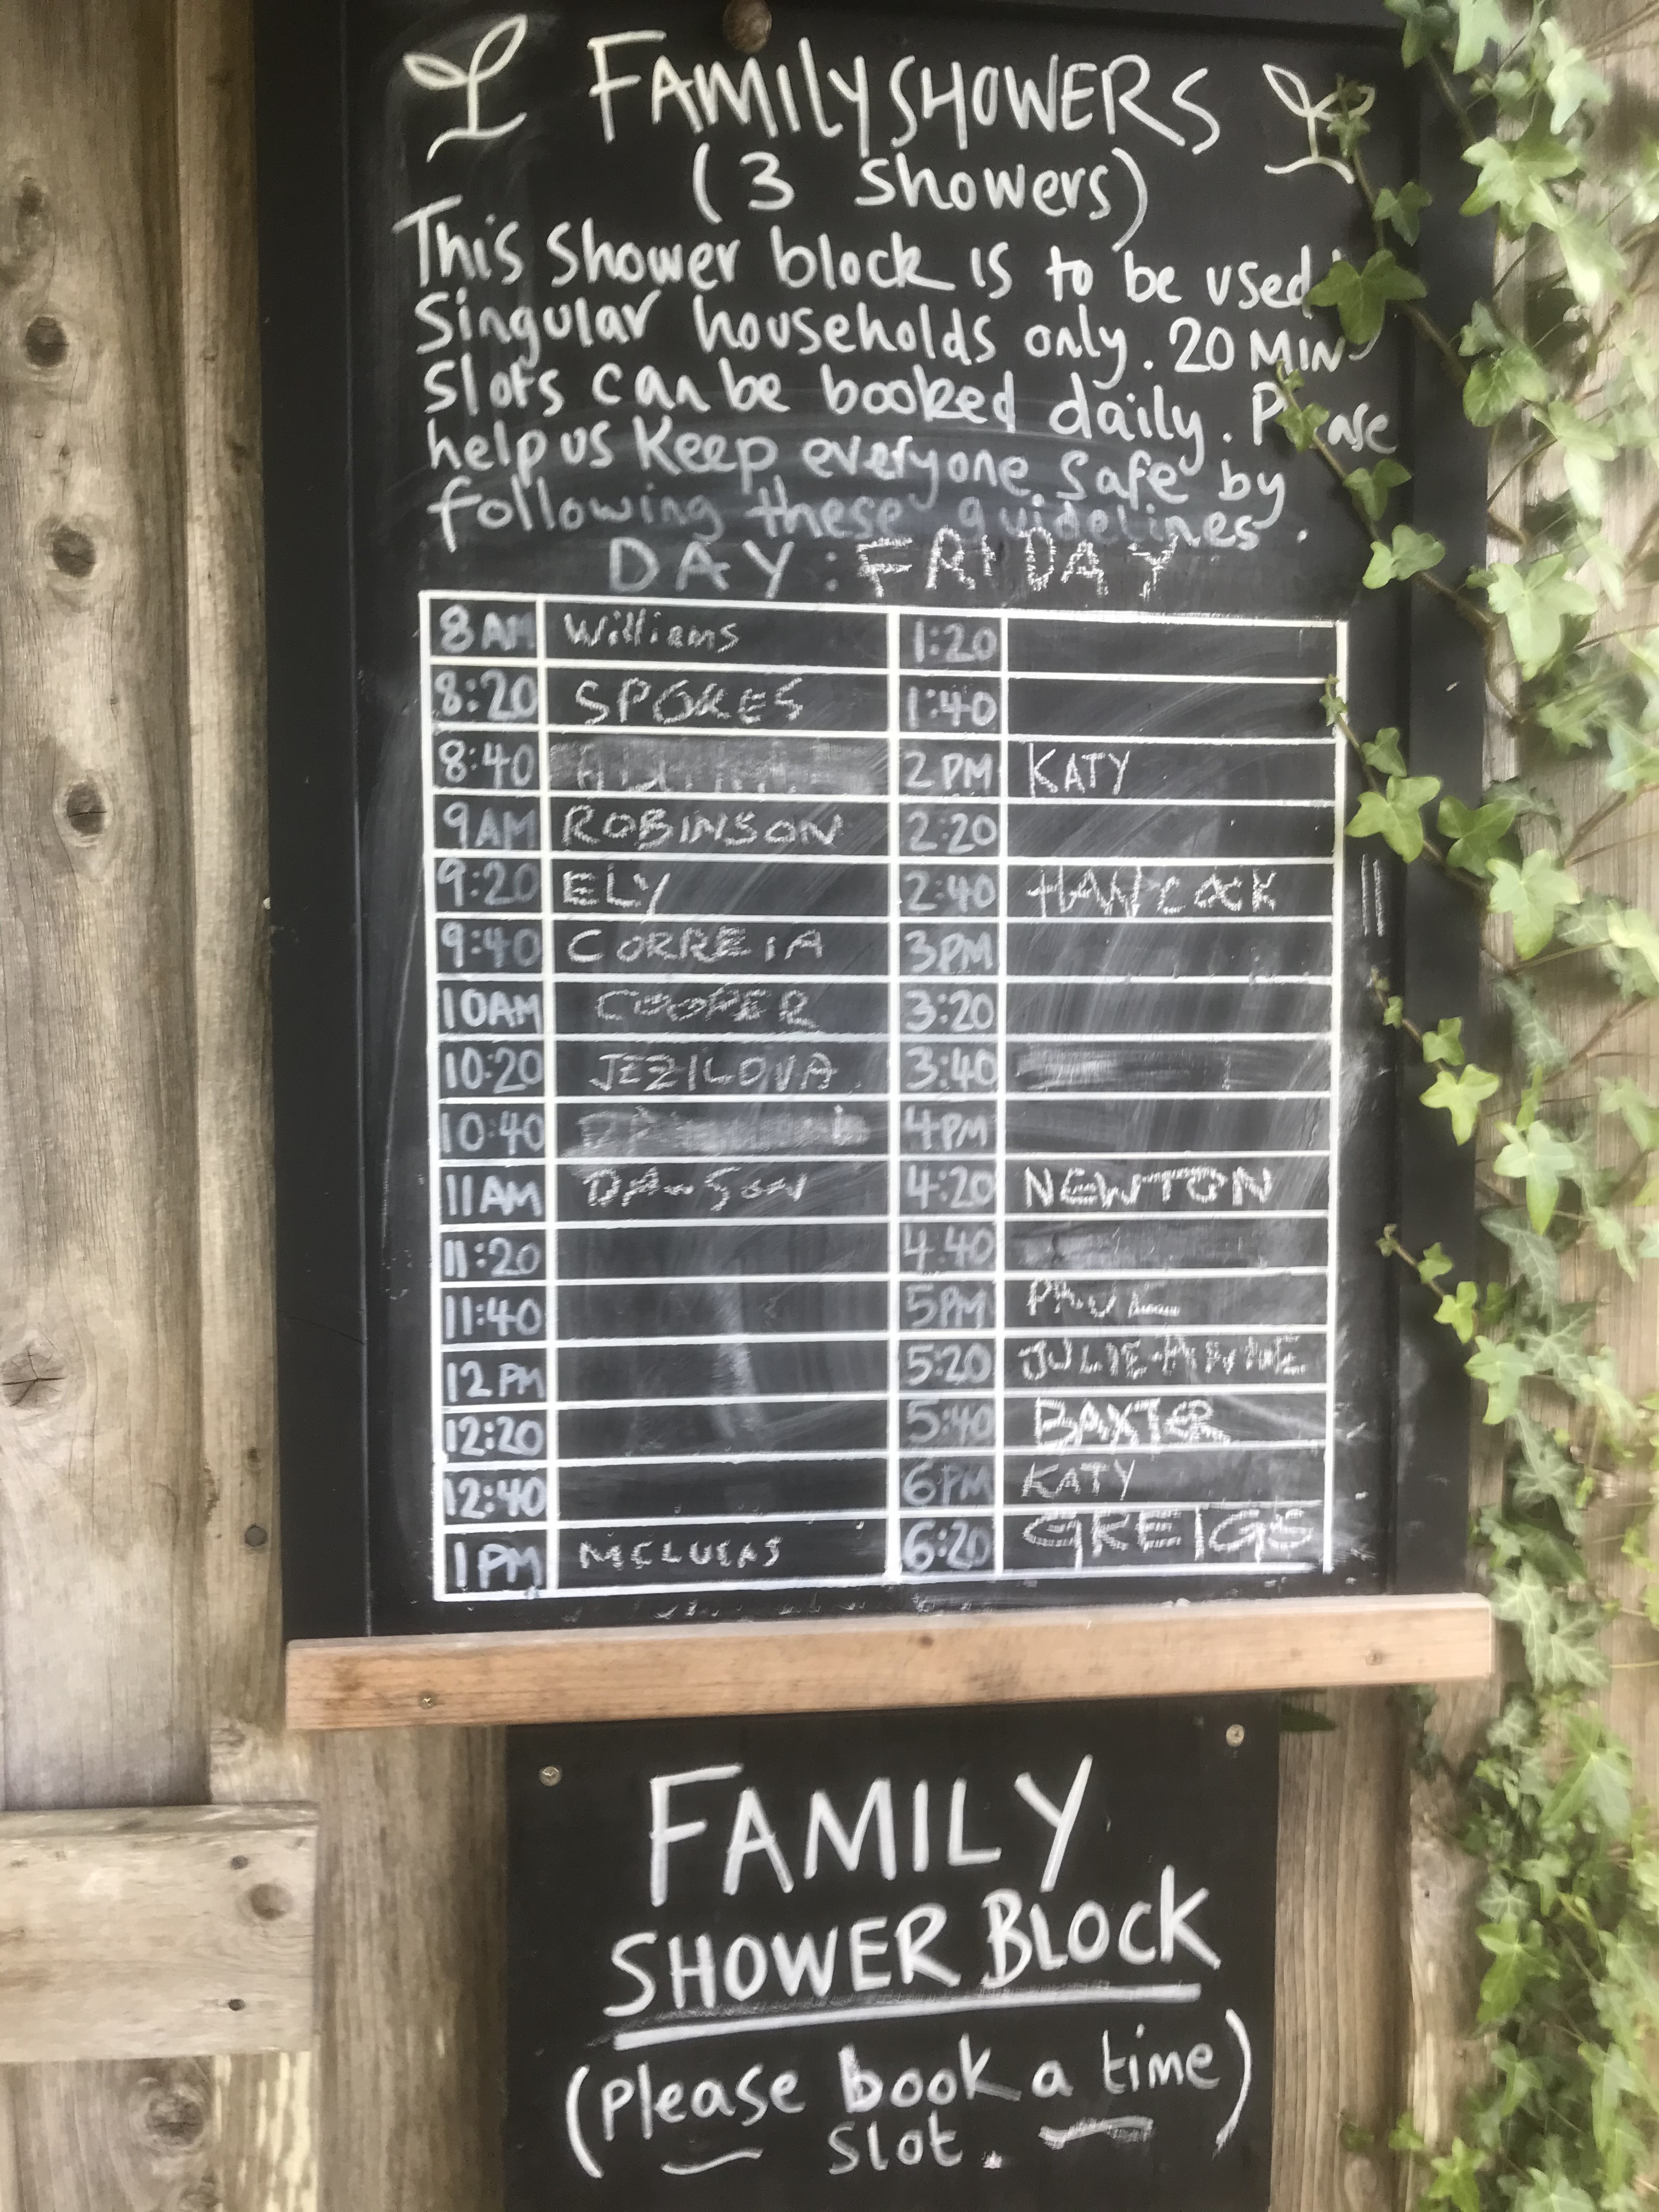 FAMILY SHOWERS
(3 showers)
This shower block is to be used
Singular households only. 20 MIN
slots can be booked daily. Please
help us keep everyone safe by
following these guidelines.
DAY: FRIDAY
8 AM Williams 1:20
8:20 SPOKES 1:40
8:40 2 PM KATY
9 AM ROBINSON 2:20
9:20 ELY 2:40 HANCOCK
9:40 CORREIA 3PM
10AM COOPER 3:20
10:20 JEZILOVA 3:40
10:40 4PM
11 AM DAWSON 4:20 NEWTON
11:20 4:40
11:40 5PM
12 PM 5:20 JULIE-ANNE
12:20 5:40 BAXTER
12:40 6PM KATY
1 PM MCLUCAS 6:20 GREIGS
FAMILY
SHOWER BLOCK
(please book a time)
slot.